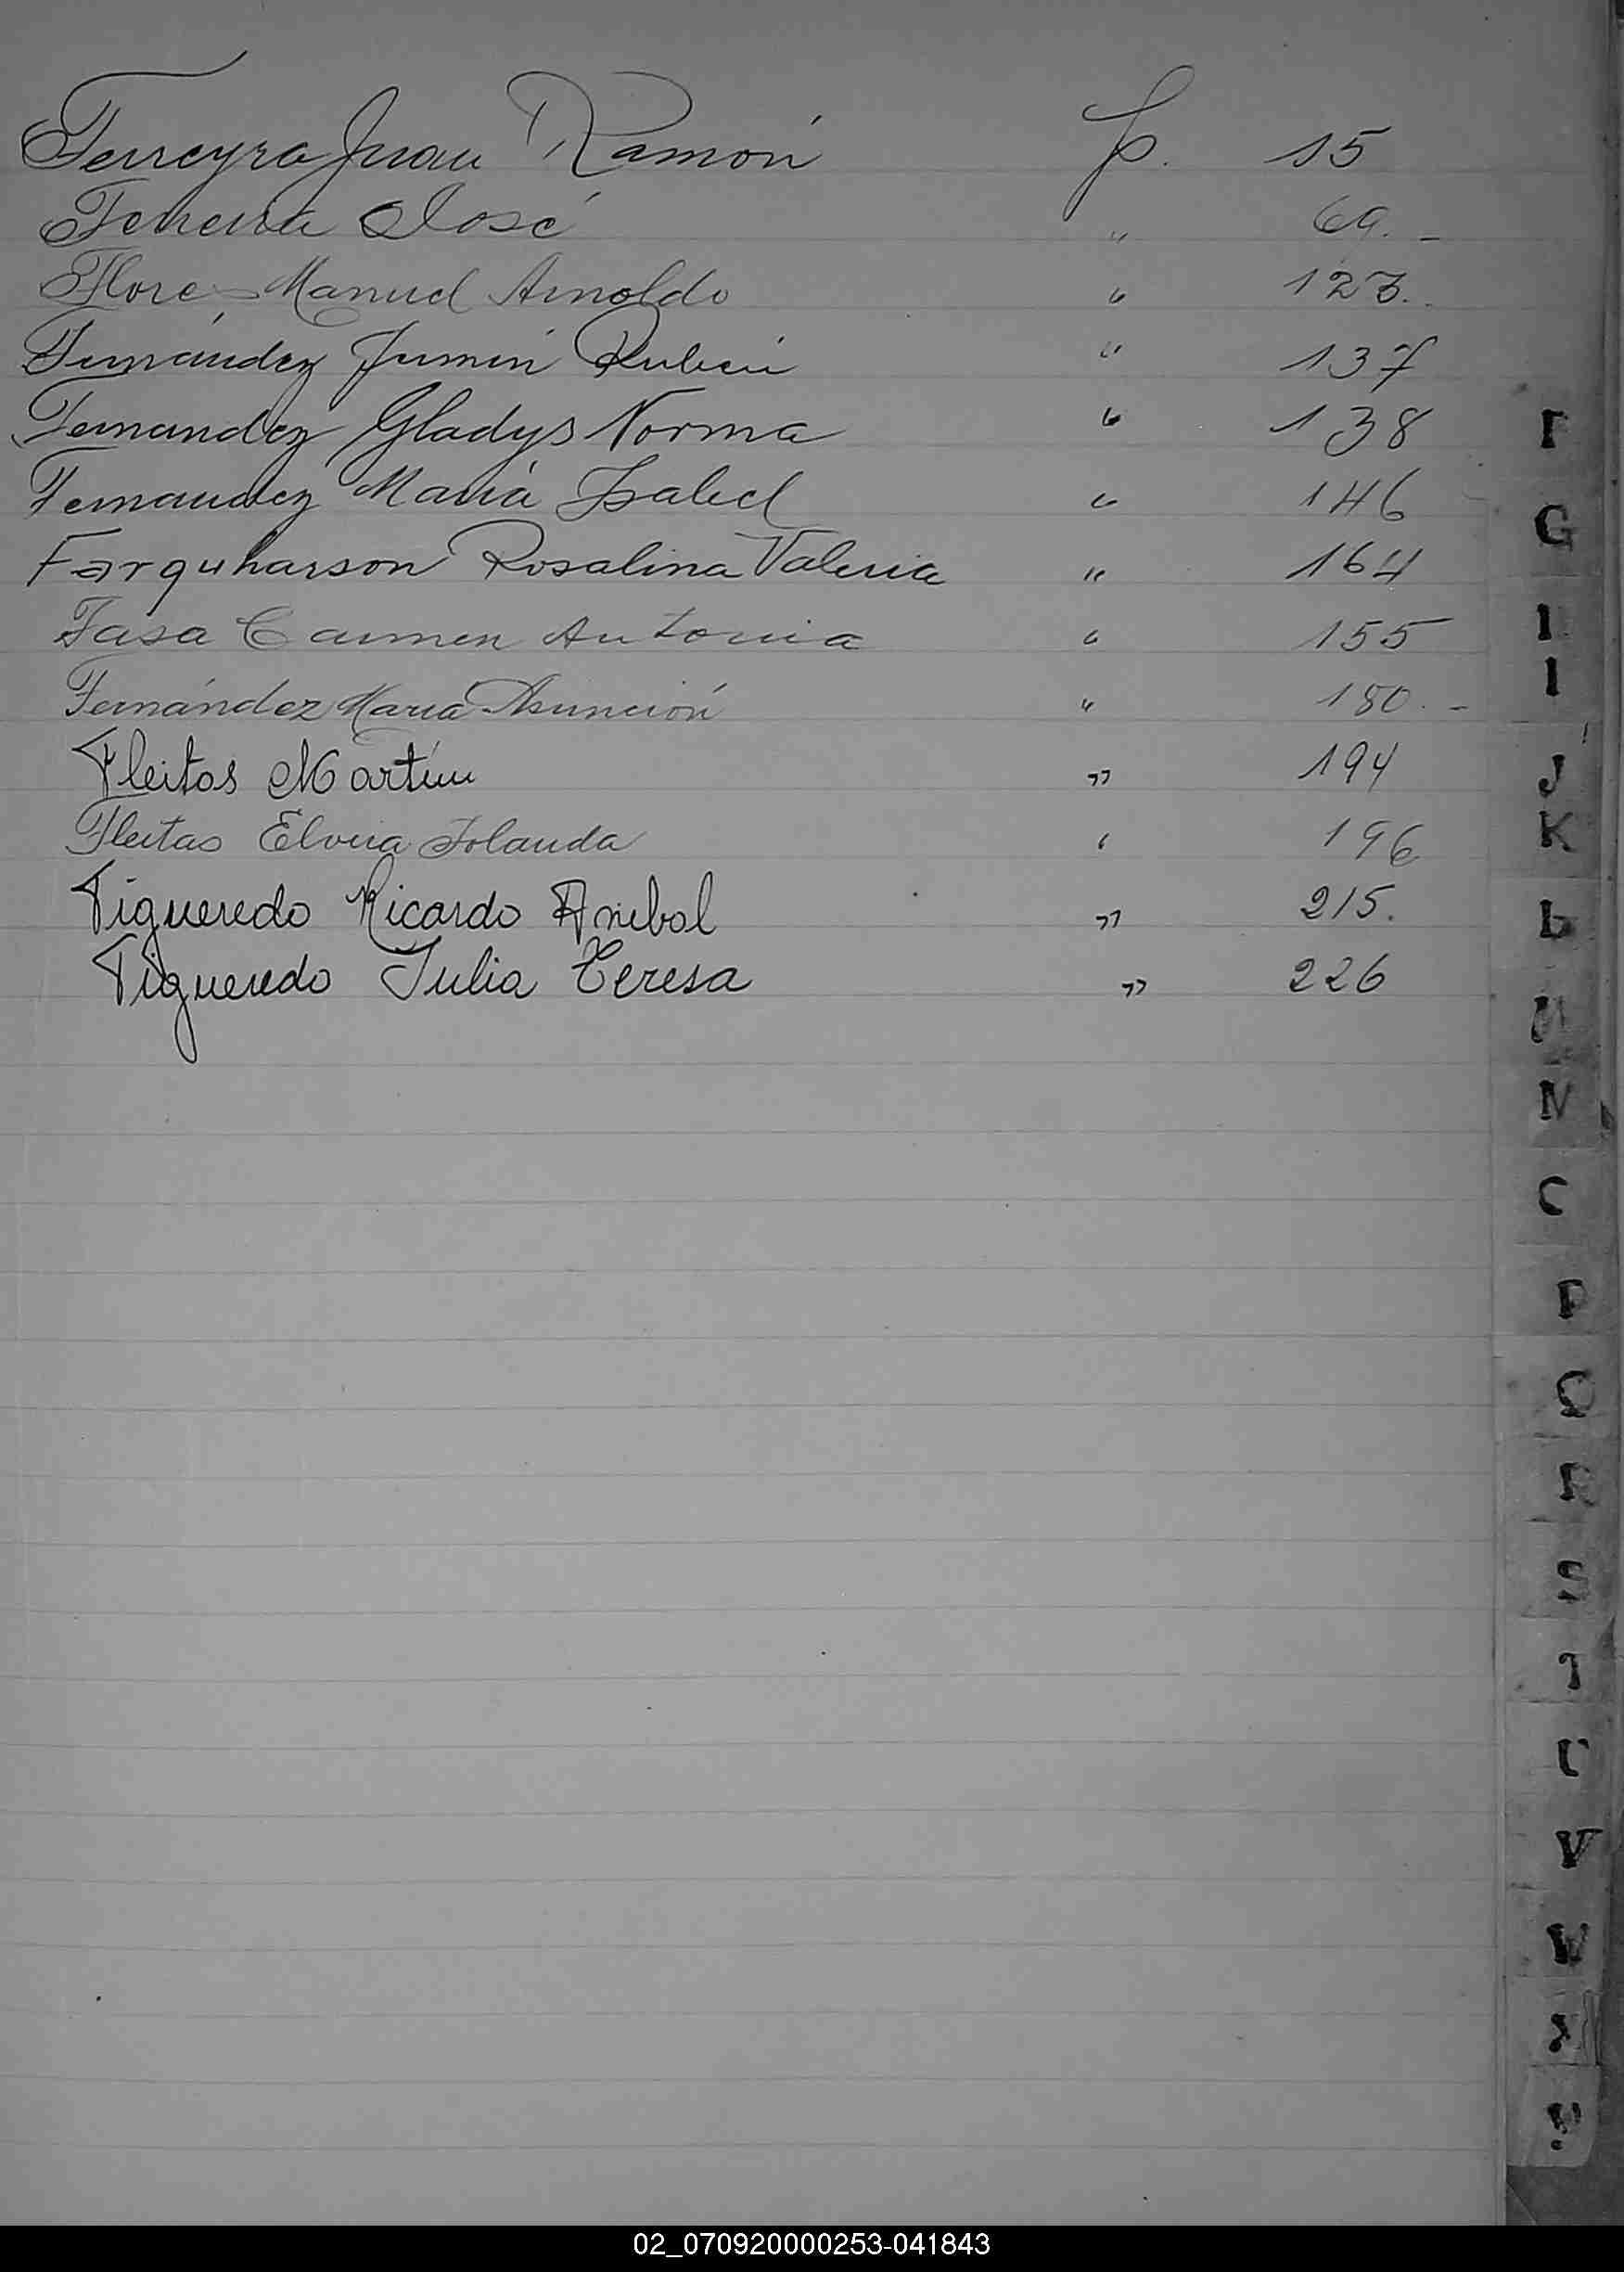 Ferreyra Juan Ramón p. 15
Ferreira José " 69.-
Flores Manuel Arnoldo " 123.
Fernández Fermín Rubén " 137
Fernandez Gladys Norma " 138
Fernandez María Isabel " 146
Farquharson Rosalina Valeria " 164
Fasa Carmen Antonia " 155
Fernández María Asunción " 180.-
Fleitas Martín " 194
Fleitas Elvira Iolanda " 196
Figueredo Ricardo Anibal " 215.
Figueredo Julia Teresa " 226
F
G
I
J
K
L
M
N
P
Q
R
S
T
U
V
W
02_070920000253-041843